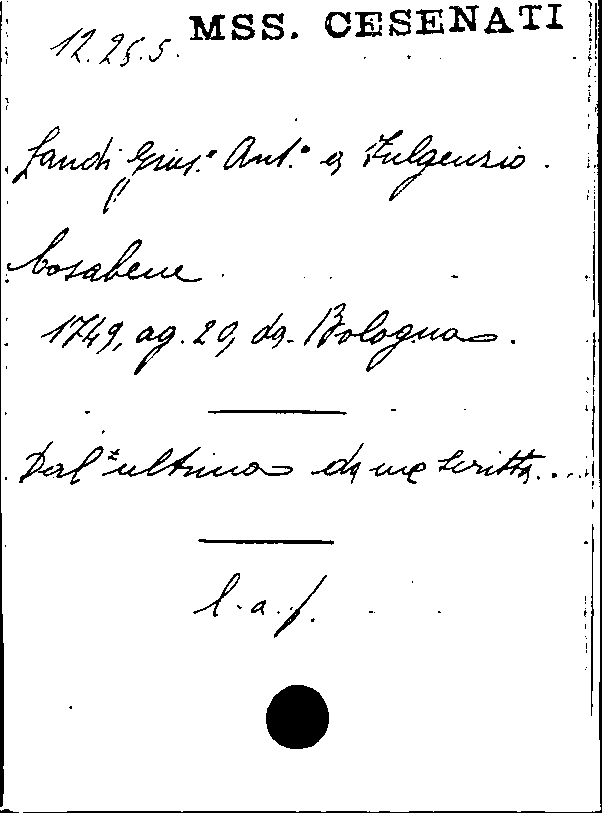 MSS. CESENATI
12.25.5.
Landi Gius.e Ant.o a Fulgenzio
Cosabene
1749, ag. 20, da Bologna.
Dall'ultima da me scritta....
l. a. f.